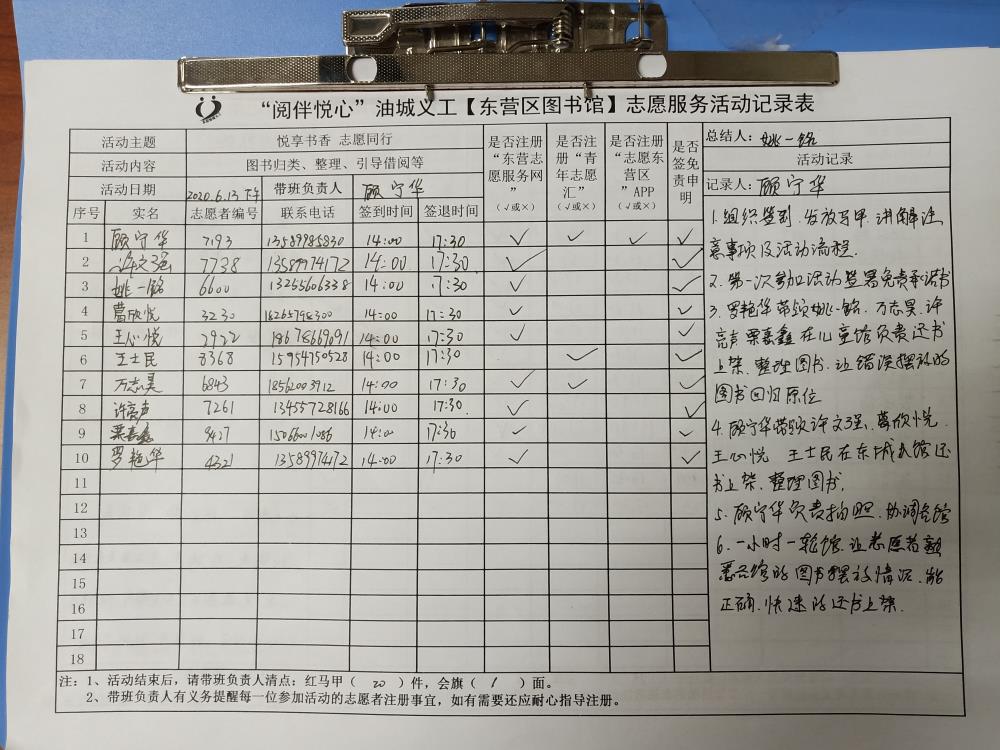 “阅伴悦心”油城义工【东营区图书馆】志愿服务活动记录表
活动主题 悦享书香 志愿同行
活动内容 图书归类、整理、引导借阅等
活动日期 2020.6.13 下午 带班负责人 顾宁华
是否注册“东营志愿服务网” (√或×)
是否注册“青年志愿汇” (√或×)
是否注册“志愿东营区”APP (√或×)
是否签免责申明
序号 实名 志愿者编号 联系电话 签到时间 签退时间
1 顾宁华 7193 13589985830 14:00 17:30 √ √ √ √
2 许文强 7738 13589974172 14:00 17:30 √ √
3 姚一铭 6600 13265606338 14:00 17:30 √ √
4 葛欣悦 3230 18265798300 14:00 17:30 √ √
5 王心悦 2922 18678669091 14:00 17:30 √ √
6 王士民 8368 15954750528 14:00 17:30 √ √
7 万志昊 6843 18562003912 14:00 17:30 √ √ √
8 许亮声 7261 13455728166 14:00 17:30 √ √
9 栗嘉鑫 9427 1506601086 14:00 17:30 √ √
10 罗艳华 4321 13589974172 14:00 17:30 √ √
11
12
13
14
15
16
17
18
总结人：姚一铭
活动记录
记录人：顾宁华
1.组织签到.发放马甲.讲解注
意事项及活动流程.
2.第一次参加活动签署免责承诺书
3.罗艳华带领姚一铭.万志昊.许
亮声栗嘉鑫在儿童馆负责还书
上架.整理图书.让错误摆放的
图书回归原位
4.顾宁华带领许文强.葛欣悦.
王心悦 王士民在东城大馆还
书上架.整理图书.
5.顾宁华负责拍照.协调各馆
6.一小时一轮馆.让志愿者熟
悉各馆的图书摆放情况.能
正确.快速的还书上架.
注：1、活动结束后，请带班负责人清点：红马甲（ 20 ）件，会旗（ 1 ）面。
2、带班负责人有义务提醒每一位参加活动的志愿者注册事宜，如有需要还应耐心指导注册。